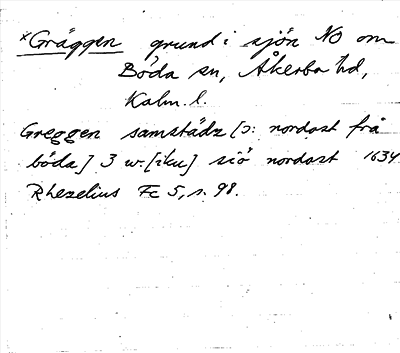 ×Gräggen grund i sjön NO om
Böda sn, Åkerbo hd,
Kalm. l.
Greggen samstädz [ɔ: nordost från
böda] 3 w. [iku] siö nordost 1634
Rhezelius Fc 5, s. 98.